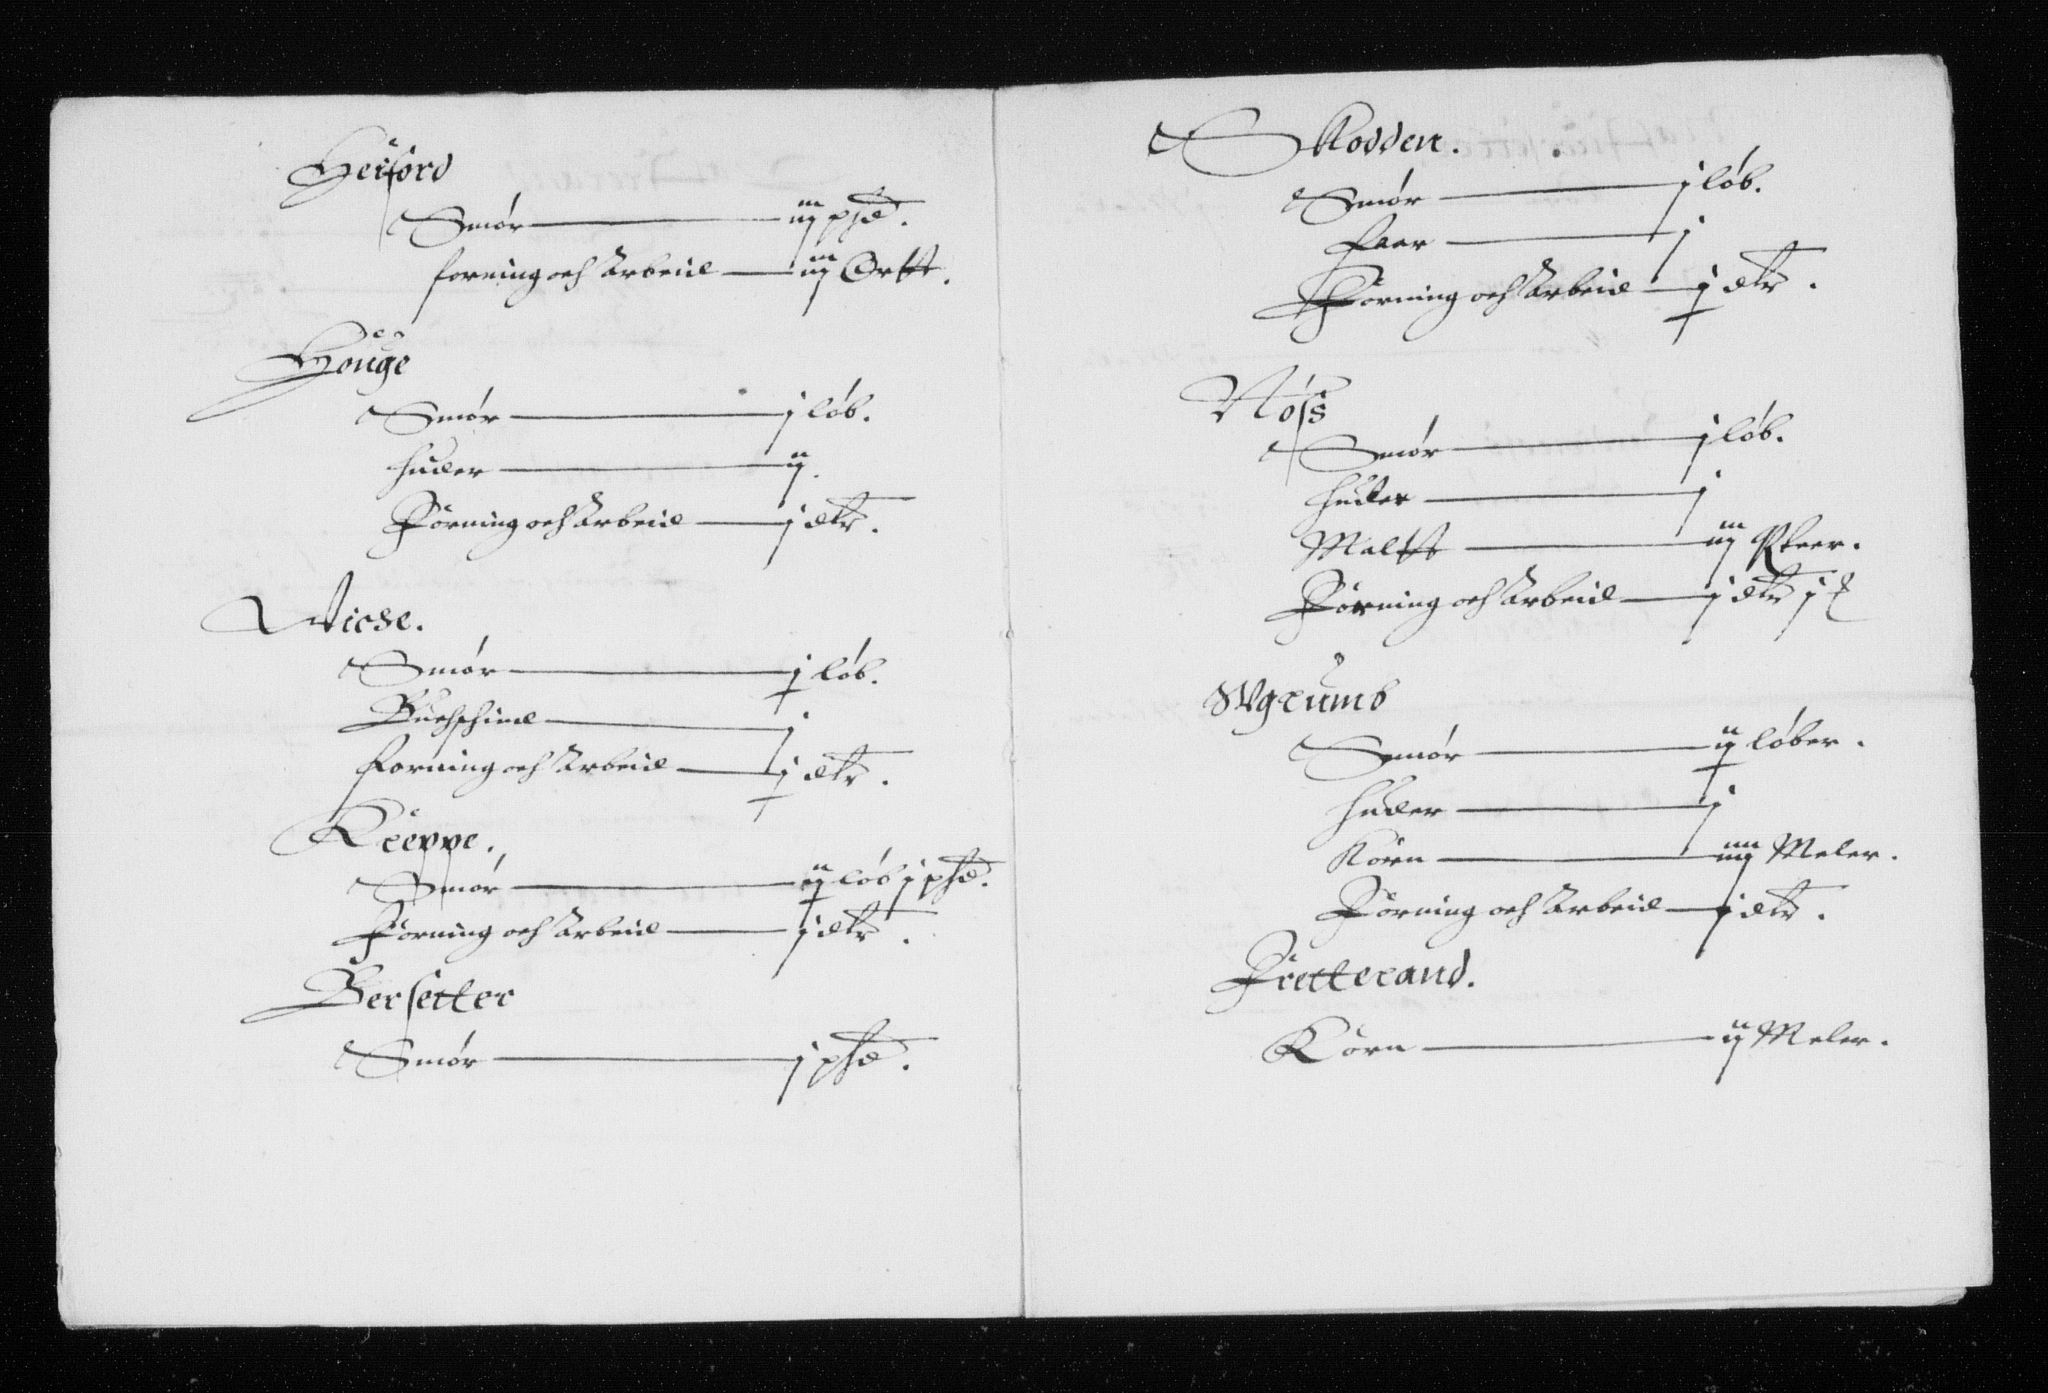 Herford
Smör iij pд.
forning och Arbeid iij Ortt.
Höuge
Smör j löb.
huder ij.
Förning och Arbeid j dlr.
Vicse.
Smör j löb.
Buchschind j
forning och Arbeid j dlr.
Kreppe.
Smör ij löb j pd.
Förning och Arbeid j dlr.
BerSetter
Smör j pd.
Skodden.
Smör j löb.
Faar j
Förning och Arbeid j dlr.
Nöss
Smör j löb.
huder j
Maltt iij
Förning och Arbeid j dlr j
Wgrumb
Smör ij löber.
huder j
Körn iiij Meler.
Förning och Arbeid j dlr.
Fretterand.
Körn ij Meler.